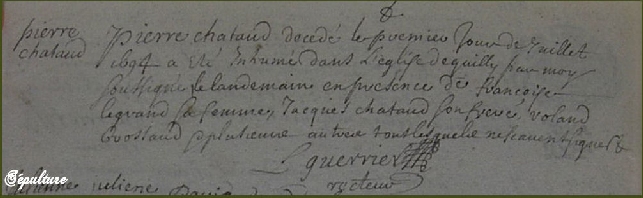 pierre
chataud
Pierre chataud decedé le premier Jour de Juillet
1694 a eté Inhumé dans L'eglise de quilly par moy
soussigné le landemaine en presence de francoise
legrand sa femme, Jacques chataud son frere, roland
brossaud plusieurs autres tous lesquels ne scavent signer
L guerrier
recteur
Sépulture
juliene